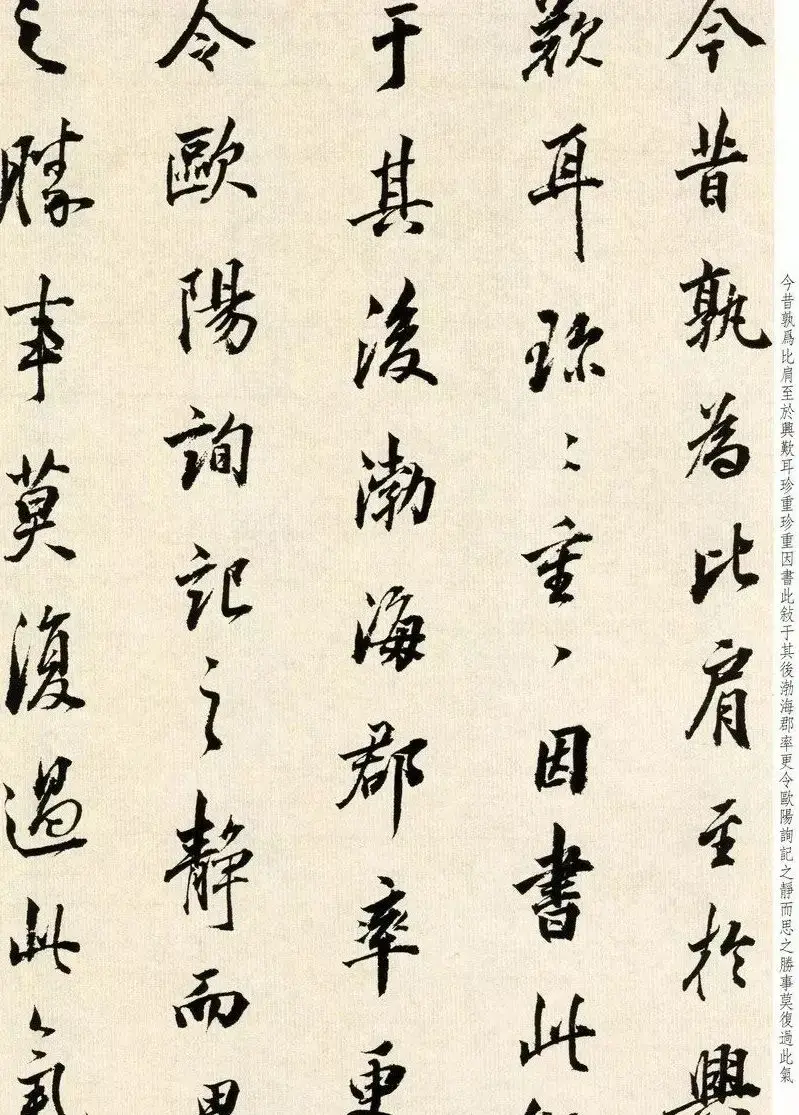 今昔孰為比肩至於興
歎耳珍〻重〻因書此敍
于其後渤海郡率更
令歐陽詢記之靜而思
之勝事莫復過此〻氣
今昔孰爲比肩至於興歎耳珍重珍重因書此敍于其後渤海郡率更令歐陽詢記之靜而思之勝事莫復過此氣